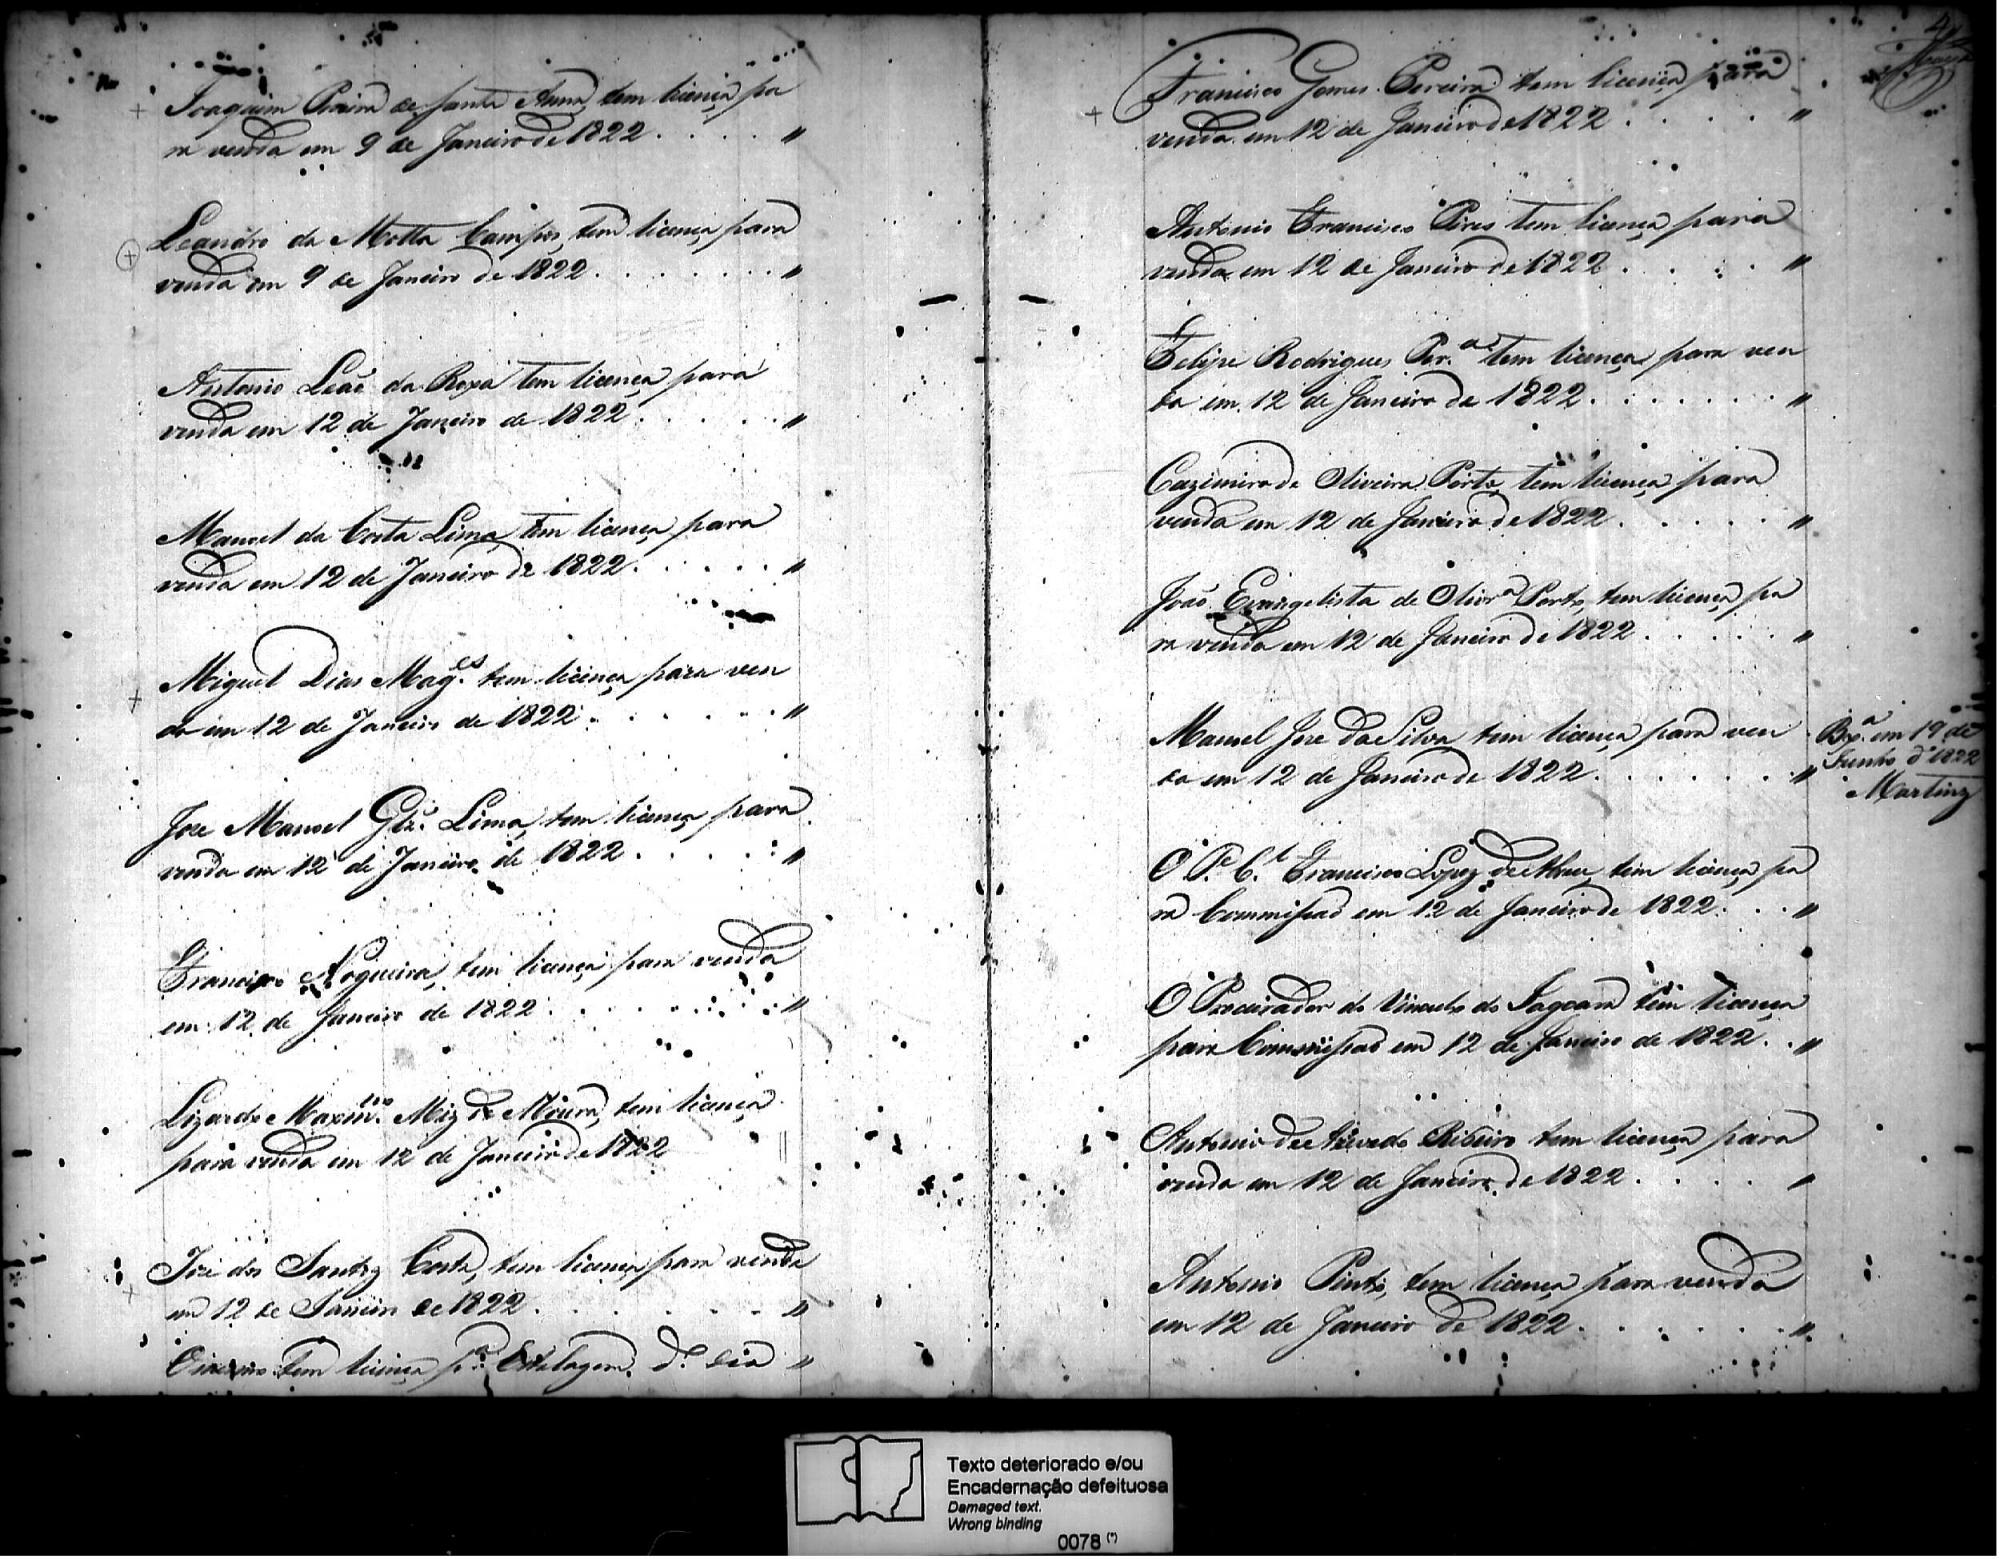 Joaquim Pereira de Santa Anna, tem licença pa
ra venda em 9 de Janeiro de 1822 . . . . "
Leandro da Motta Campos, tem licença para
venda em 9 de Janeiro de 1822 . . . . . . . "
Antonio Leaõ da Roxa tem licença para
venda em 12 de Janeiro de 1822 . . . . . "
Manoel da Costa Lima, tem licença para
venda em 12 de Janeiro de 1822 . . . . . "
Miguel Dias Mag.es tem licença para ven
da em 12 de Janeiro de 1822 . . . . . . "
Joze Manoel Glz. Lima, tem licença para
venda em 12 de Janeiro de 1822 . . . . . "
Francisco Nogueira, tem licença para venda
em 12 de Janeiro de 1822 . . . . . . . "
Lizardo Maxim.no Miz de Moura, tem licença
para venda em 12 de Janeiro de 1822
Joze dos Santos Costa, tem licença para venda
em 12 de Janeiro de 1822 . . . . . . . "
O mesmo tem licença p.a Estalagem, d.o dia "
4
Francisco Gomes Pereira tem licença para
venda em 12 de Janeiro de 1822 . . . . "
Antonio Francisco Pires tem licença para
venda em 12 de Janeiro de 1822 . . . . "
Felipe Rodrigues Per.a tem licença para ven
da em 12 de Janeiro de 1822 . . . . . . . "
Cazimiro de Oliveira Porto, tem licença para
venda em 12 de Janeiro de 1822 . . . . . "
Joaõ Evangelista de Olivr.a Porto, tem licença pa
ra venda em 12 de Janeiro de 1822 . . . . . "
Manoel Joze da Silva tem licença para ven
da em 12 de Janeiro de 1822 . . . . . . . "
Bx.a em 19 de
Junho d' 1822
Martins
O P.e C.l Francisco Lopez de Abreu, tem licença pa
ra Commissaõ em 12 de Janeiro de 1822 . . . "
O Procurador do Vinculo do Jagoara tem licença
para Commissaõ em 12 de Janeiro de 1822 . . "
Antonio de Azevedo Ribeiro tem licença para
venda em 12 de Janeiro de 1822 . . . . "
Antonio Pinto, tem licença para venda
em 12 de Janeiro de 1822 . . . . . . . "
Texto deteriorado e/ou
Encadernação defeituosa
Damaged text.
Wrong binding
0078 (*)